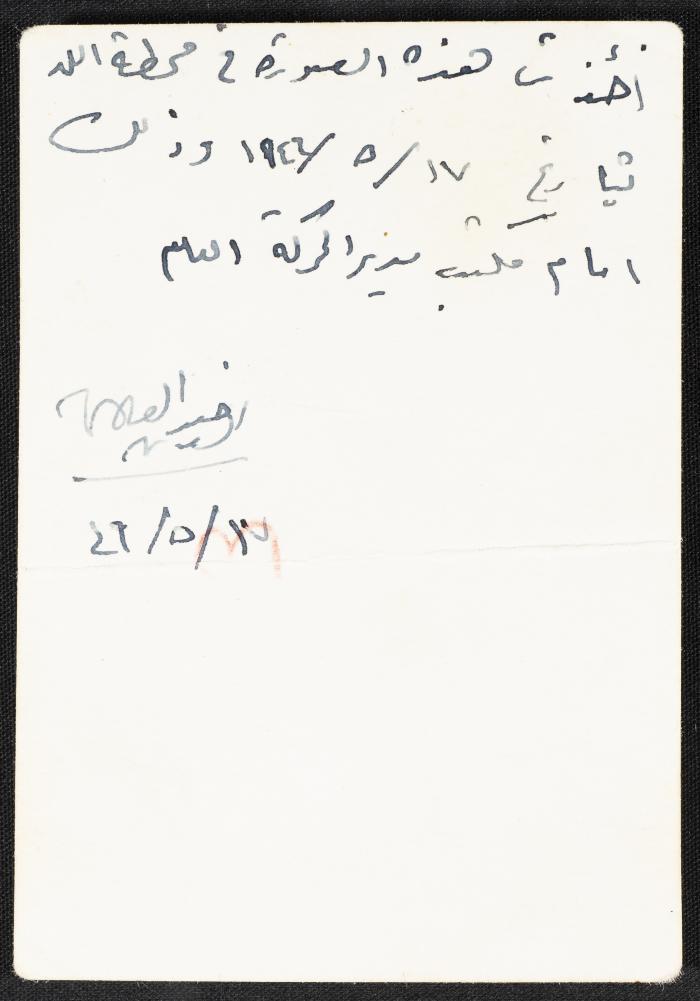 أخذت هذه الصورة في محطة اللد
بتاريخ ١٧/ ٥/ ١٩٤٦ وذلك
امام مكتب مدير الحركة العام
١٧/٥/٤٦